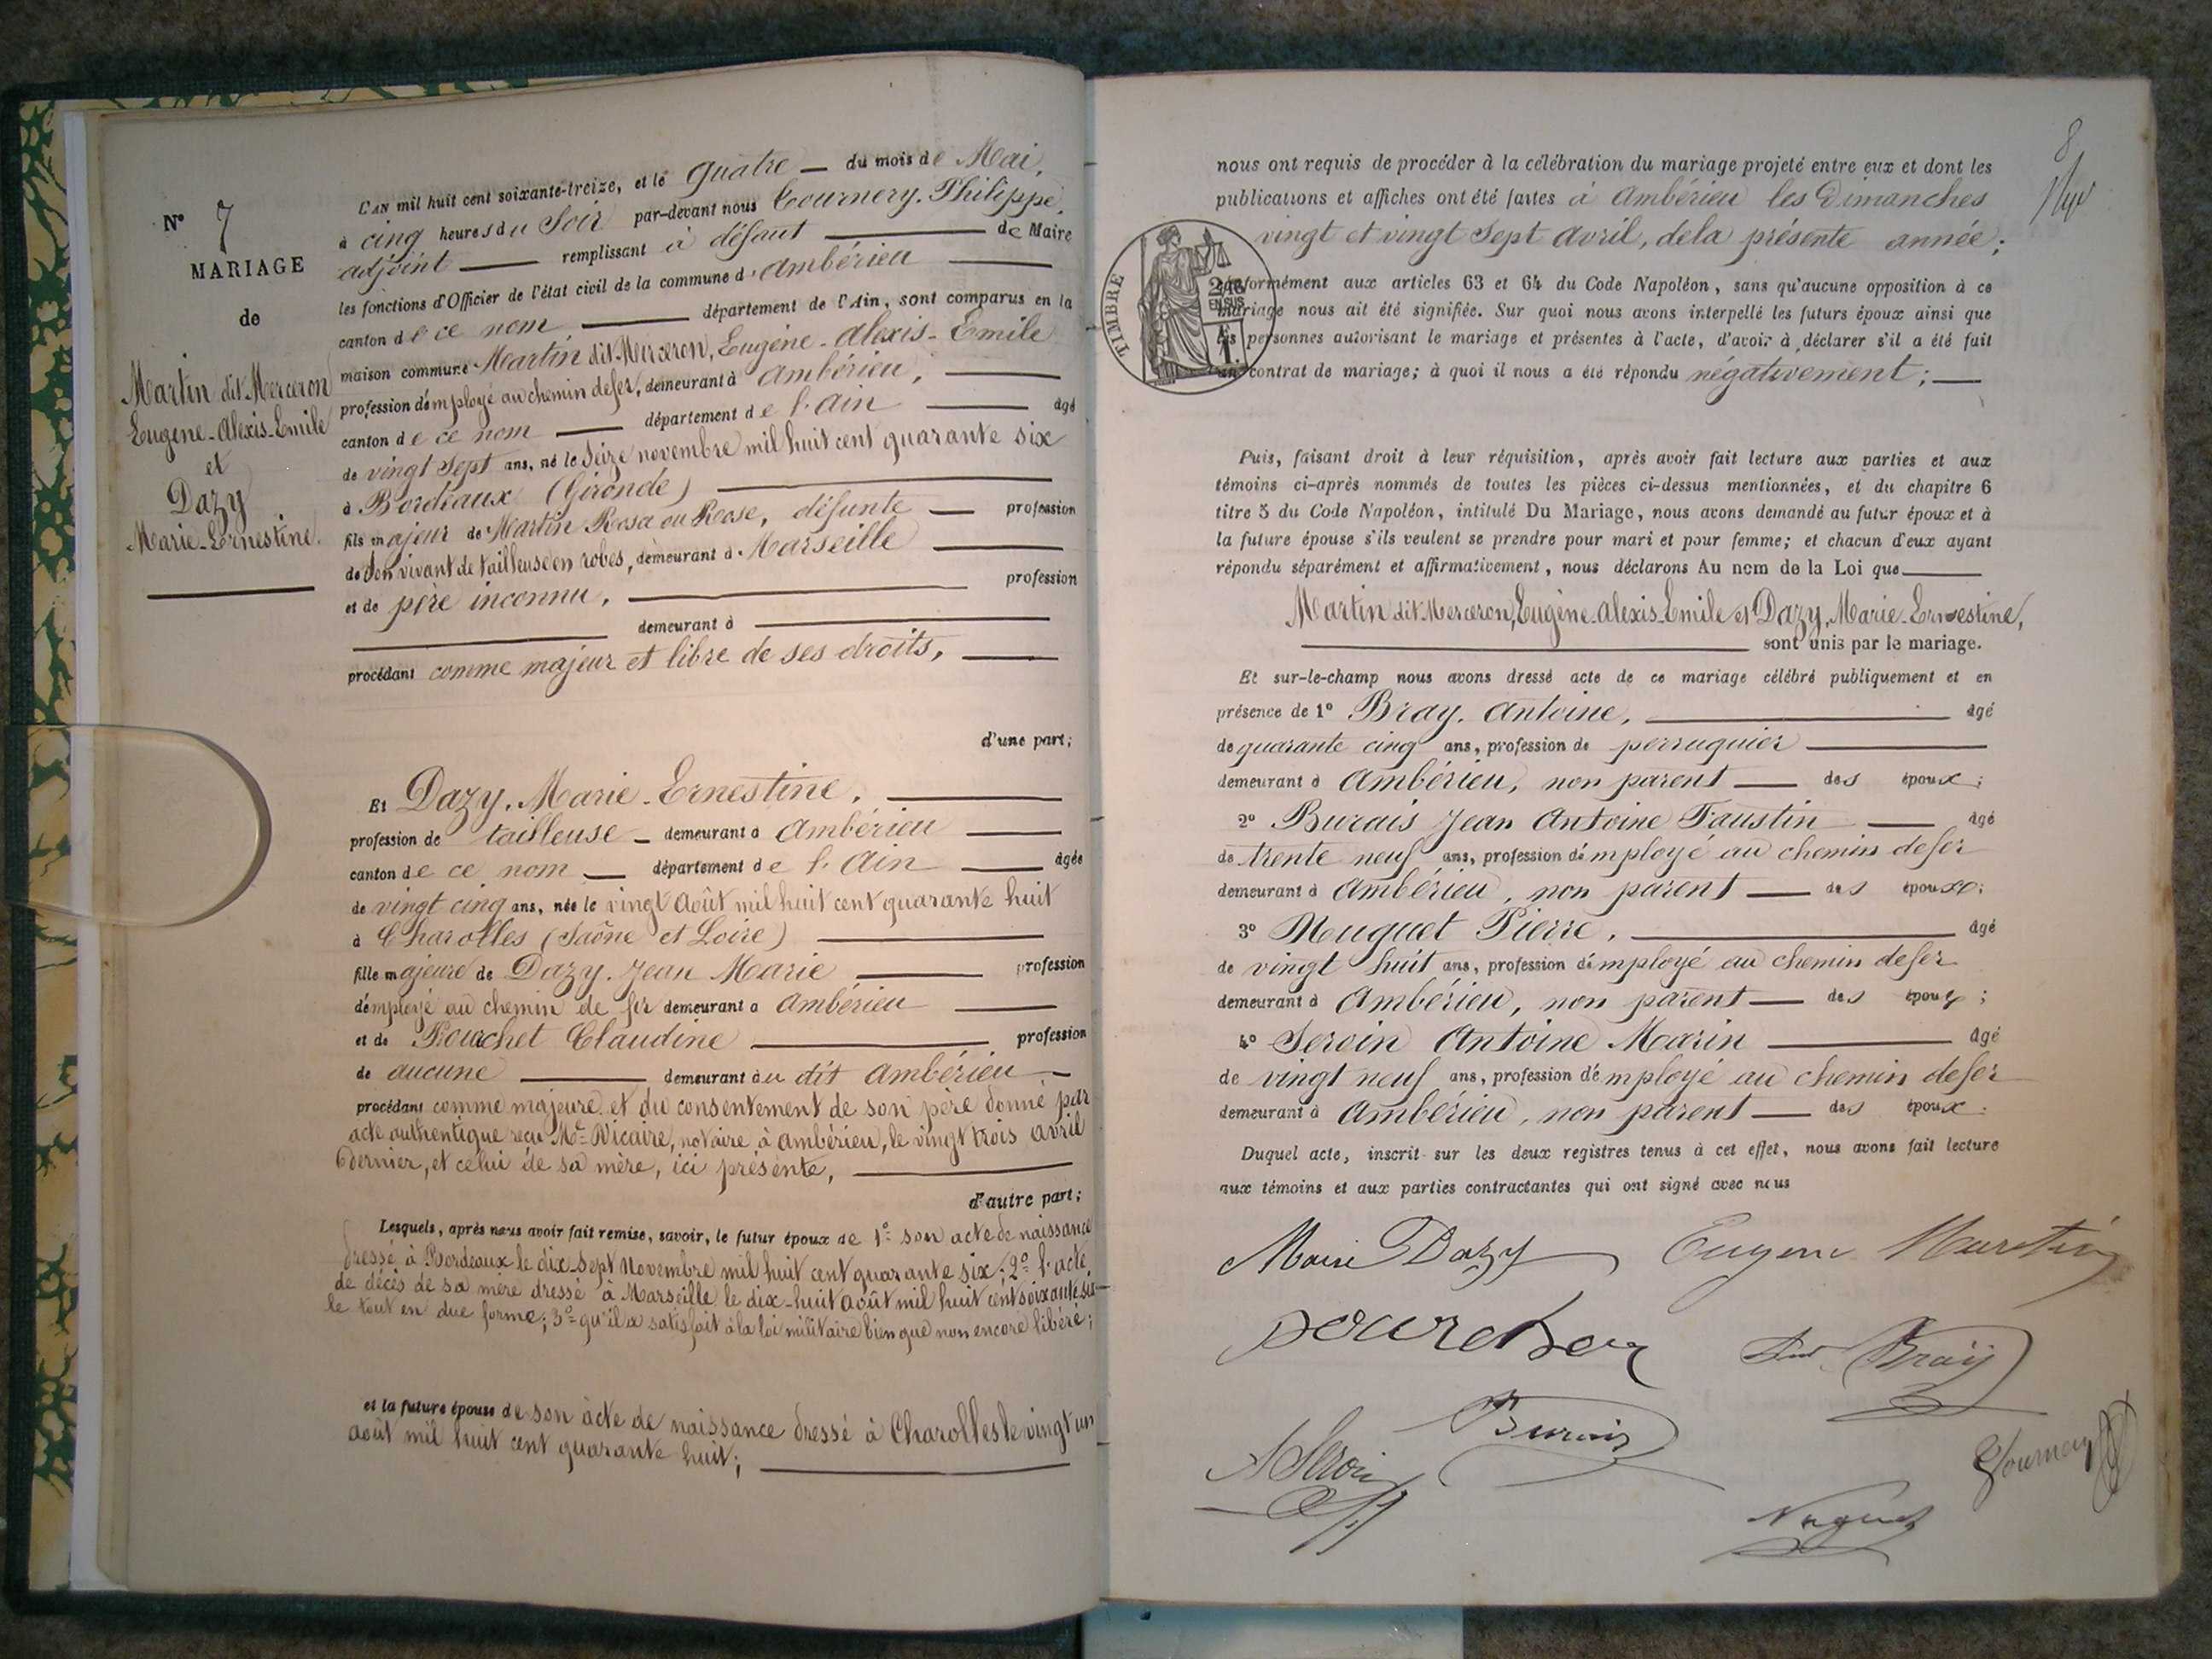 N° 7
MARIAGE
de
Martin dit Merceron
Eugène-Alexis-Emile
et
Dazy
Marie-Ernestine.
L'AN mil huit cent soixante-treize, et le quatre du mois de Mai,
à cinq heures du Soir par-devant nous Tournery, Philippe,
adjoint remplissant à défaut de Maire
les fonctions d'Officier de l'état civil de la commune d'Ambérieu
canton de ce nom département de l'Ain, sont comparus en la
maison commune Martin dit Merceron, Eugène-Alexis-Emile
profession d'employé au chemin de fer, demeurant à Ambérieu,
canton de ce nom département de l'Ain âgé
de vingt Sept ans, né le Seize novembre mil huit cent quarante six
à Bordeaux (Gironde)
fils majeur de Martin Rosa ou Rose, défunte profession
de son vivant de tailleuse en robes, demeurant à Marseille
et de père inconnu, profession
demeurant à
procédant comme majeur et libre de ses droits,
d'une part;
Et Dazy, Marie-Ernestine,
profession de tailleuse demeurant à Ambérieu
canton de ce nom département de l'Ain âgée
de vingt cinq ans, née le vingt Août mil huit cent quarante huit
à Charolles (Saône et Loire)
fille majeure de Dazy, Jean Marie profession
d'employé au chemin de fer demeurant à Ambérieu
et de Pourchet Claudine profession
de aucune demeurant au dit Ambérieu
procédant comme majeure et du consentement de son père donné par
acte authentique reçu Me Vicaire, notaire à Ambérieu, le vingt trois avril
dernier, et celui de sa mère, ici présente,
d'autre part;
Lesquels, après nous avoir fait remise, savoir, le futur époux de 1° son acte de naissance
dressé à Bordeaux le dix Sept Novembre mil huit cent quarante six; 2° l'acte
de décès de sa mère dressé à Marseille le dix-huit août mil huit cent soixante six
le tout en due forme; 3° qu'il a satisfait à la loi militaire bien que non encore libéré;
et la future épouse de son acte de naissance dressé à Charolles le vingt un
août mil huit cent quarante huit;
8
nous ont requis de procéder à la célébration du mariage projeté entre eux et dont les
publications et affiches ont été faites à Ambérieu les Dimanches
vingt et vingt Sept avril, de la présente année;
TIMBRE
2/10
EN SUS
1.
conformément aux articles 63 et 64 du Code Napoléon, sans qu'aucune opposition à ce
mariage nous ait été signifiée. Sur quoi nous avons interpellé les futurs époux ainsi que
les personnes autorisant le mariage et présentes à l'acte, d'avoir à déclarer s'il a été fait
un contrat de mariage; à quoi il nous a été répondu négativement;
Puis, faisant droit à leur réquisition, après avoir fait lecture aux parties et aux
témoins ci-après nommés de toutes les pièces ci-dessus mentionnées, et du chapitre 6
titre 5 du Code Napoléon, intitulé Du Mariage, nous avons demandé au futur époux et à
la future épouse s'ils veulent se prendre pour mari et pour femme; et chacun d'eux ayant
répondu séparément et affirmativement, nous déclarons Au nom de la Loi que
Martin dit Merceron, Eugène-Alexis-Emile et Dazy, Marie-Ernestine,
sont unis par le mariage.
Et sur-le-champ nous avons dressé acte de ce mariage célébré publiquement et en
présence de 1° Bray, Antoine, âgé
de quarante cinq ans, profession de perruquier
demeurant à Ambérieu, non parent des époux;
2° Burais Jean Antoine Faustin âgé
de trente neuf ans, profession d'employé au chemin de fer
demeurant à Ambérieu, non parent des époux;
3° Muguet Pierre, âgé
de vingt huit ans, profession d'employé au chemin de fer
demeurant à Ambérieu, non parent des époux;
4° Seroin Antoine Marin âgé
de vingt neuf ans, profession d'employé au chemin de fer
demeurant à Ambérieu, non parent des époux.
Duquel acte, inscrit sur les deux registres tenus à cet effet, nous avons fait lecture
aux témoins et aux parties contractantes qui ont signé avec nous
Marie Dazy Eugene Martin
Bray
Burais
A Seroin
Tournery
Muguet